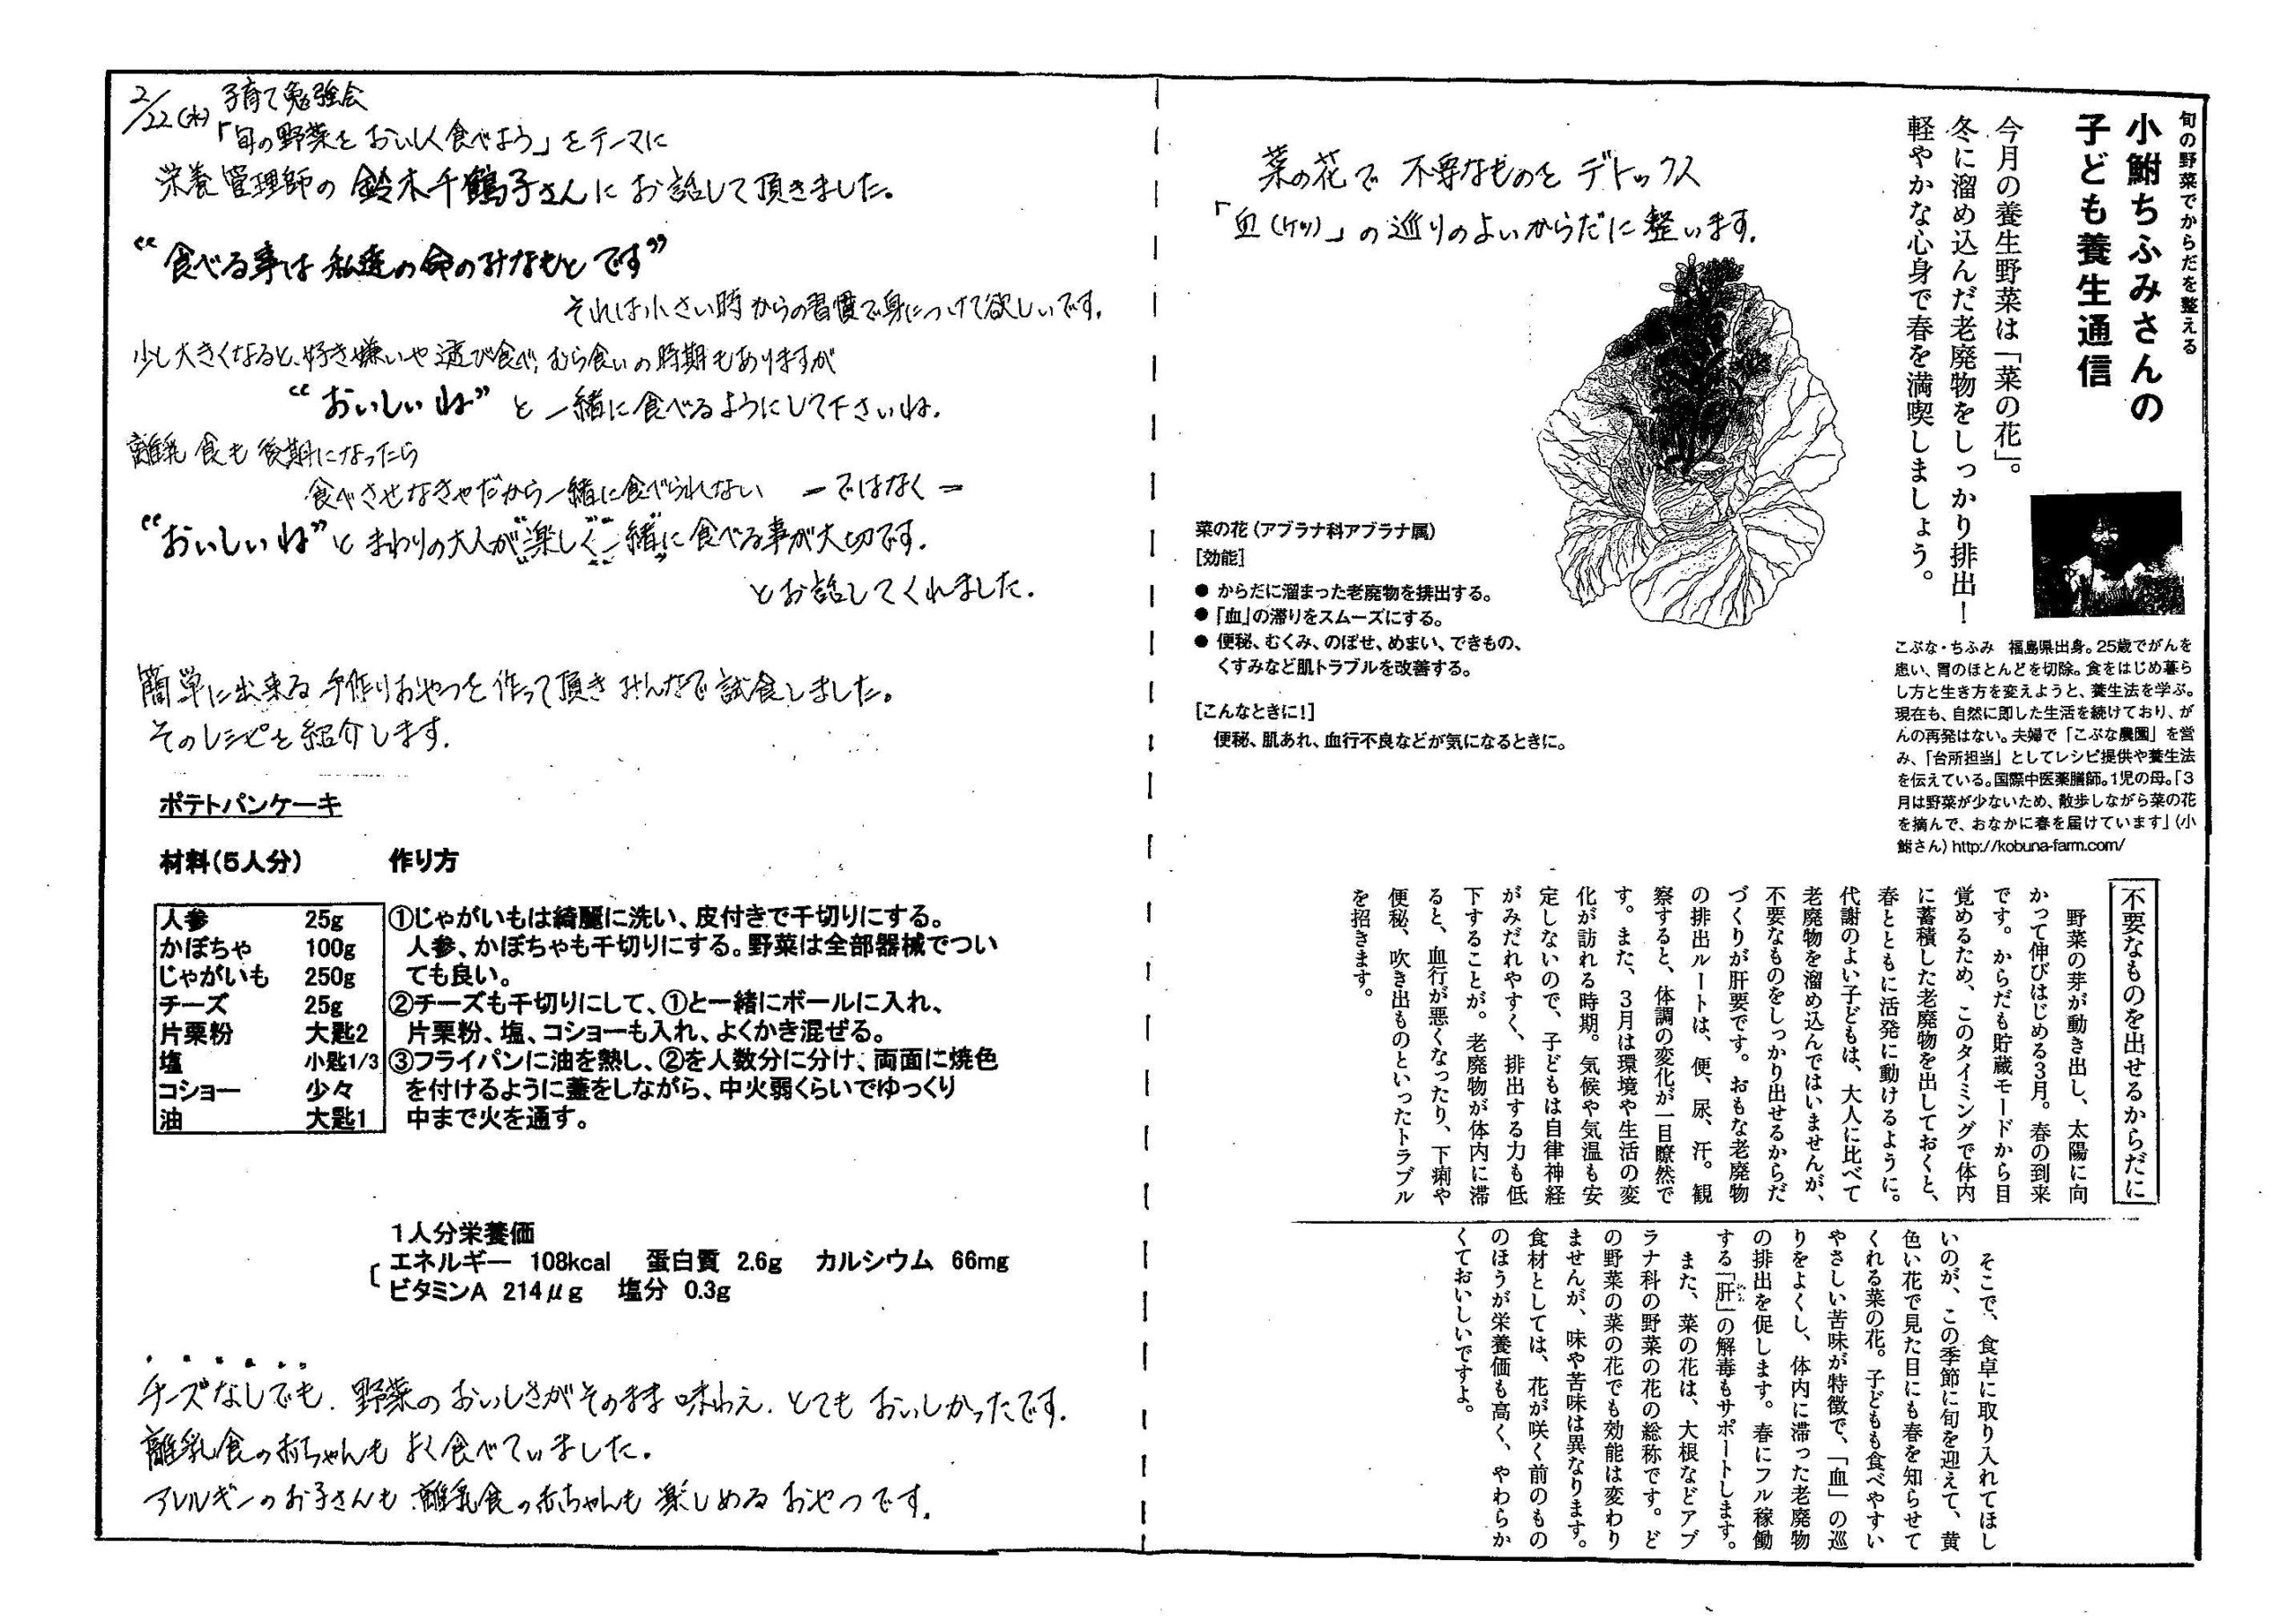 2/22(水) 子育て勉強会
「旬の野菜を おいしく食べよう」をテーマに
栄養管理師の 鈴木千鶴子さんに お話して頂きました。
“食べる事は 私達の命のみなもと です”
それは小さい時からの習慣で身につけて欲しいです。
少し大きくなると、好き嫌いや遊び食べ、むら食いの時期もありますが
“おいしいね” と 一緒に食べるようにして下さいね。
離乳食も後期になったら
食べさせなきゃだから一緒に食べられない ーではなくー
“おいしいね”と まわりの大人が“楽しく”“一緒”に食べる事が大切です。
とお話してくれました.
簡単に出来る 手作りおやつを 作って頂き みんなで 試食しました。
そのレシピを 紹介します.
ポテトパンケーキ
材料(5人分) 作り方
人参 25g
かぼちゃ 100g
じゃがいも 250g
チーズ 25g
片栗粉 大匙2
塩 小匙1/3
コショー 少々
油 大匙1
①じゃがいもは綺麗に洗い、皮付きで千切りにする。
人参、かぼちゃも千切りにする。野菜は全部器械でつい
ても良い。
②チーズも千切りにして、①と一緒にボールに入れ、
片栗粉、塩、コショーも入れ、よくかき混ぜる。
③フライパンに油を熱し、②を人数分に分け、両面に焼色
を付けるように蓋をしながら、中火弱くらいでゆっくり
中まで火を通す。
1人分栄養価
エネルギー 108kcal 蛋白質 2.6g カルシウム 66mg
ビタミンA 214μg 塩分 0.3g
チーズなしでも. 野菜の おいしさがそのまま 味わえ. とても おいしかったです.
離乳食の赤ちゃんも よく食べていました.
アレルギーのお子さんも 離乳食の赤ちゃんも 楽しめる おやつです.
旬の野菜でからだを整える
小鮒ちふみさんの
子ども養生通信
今月の養生野菜は「菜の花」。
冬に溜め込んだ老廃物をしっかり排出!
軽やかな心身で春を満喫しましょう。
菜の花で 不要なものを デトックス
「血(ケツ)」の 巡りのよいからだに 整います.
菜の花(アブラナ科アブラナ属)
[効能]
● からだに溜まった老廃物を排出する。
● 「血」の滞りをスムーズにする。
● 便秘、むくみ、のぼせ、めまい、できもの、
くすみなど肌トラブルを改善する。
[こんなときに!]
便秘、肌あれ、血行不良などが気になるときに。
こぶな・ちふみ 福島県出身。25歳でがんを
患い、胃のほとんどを切除。食をはじめ暮ら
し方と生き方を変えようと、養生法を学ぶ。
現在も、自然に即した生活を続けており、が
んの再発はない。夫婦で「こぶな農園」を営
み、「台所担当」としてレシピ提供や養生法
を伝えている。国際中医薬膳師。1児の母。「3
月は野菜が少ないため、散歩しながら菜の花
を摘んで、おなかに春を届けています」(小
鮒さん) http://kobuna-farm.com/
不要なものを出せるからだに
野菜の芽が動き出し、太陽に向
かって伸びはじめる3月。春の到来
です。からだも貯蔵モードから目
覚めるため、このタイミングで体内
に蓄積した老廃物を出しておくと、
春とともに活発に動けるように。
代謝のよい子どもは、大人に比べて
老廃物を溜め込んではいませんが、
不要なものをしっかり出せるからだ
づくりが肝要です。おもな老廃物
の排出ルートは、便、尿、汗。観
察すると、体調の変化が一目瞭然で
す。また、3月は環境や生活の変
化が訪れる時期。気候や気温も安
定しないので、子どもは自律神経
がみだれやすく、排出する力も低
下することが。老廃物が体内に滞
ると、血行が悪くなったり、下痢や
便秘、吹き出ものといったトラブル
を招きます。
そこで、食卓に取り入れてほし
いのが、この季節に旬を迎えて、黄
色い花で見た目にも春を知らせて
くれる菜の花。子どもも食べやすい
やさしい苦味が特徴で、「血」の巡
りをよくし、体内に滞った老廃物
の排出を促します。春にフル稼働
する「肝」の解毒もサポートします。
また、菜の花は、大根などアブ
ラナ科の野菜の花の総称です。ど
の野菜の菜の花でも効能は変わり
ませんが、味や苦味は異なります。
食材としては、花が咲く前のもの
のほうが栄養価も高く、やわらか
くておいしいですよ。